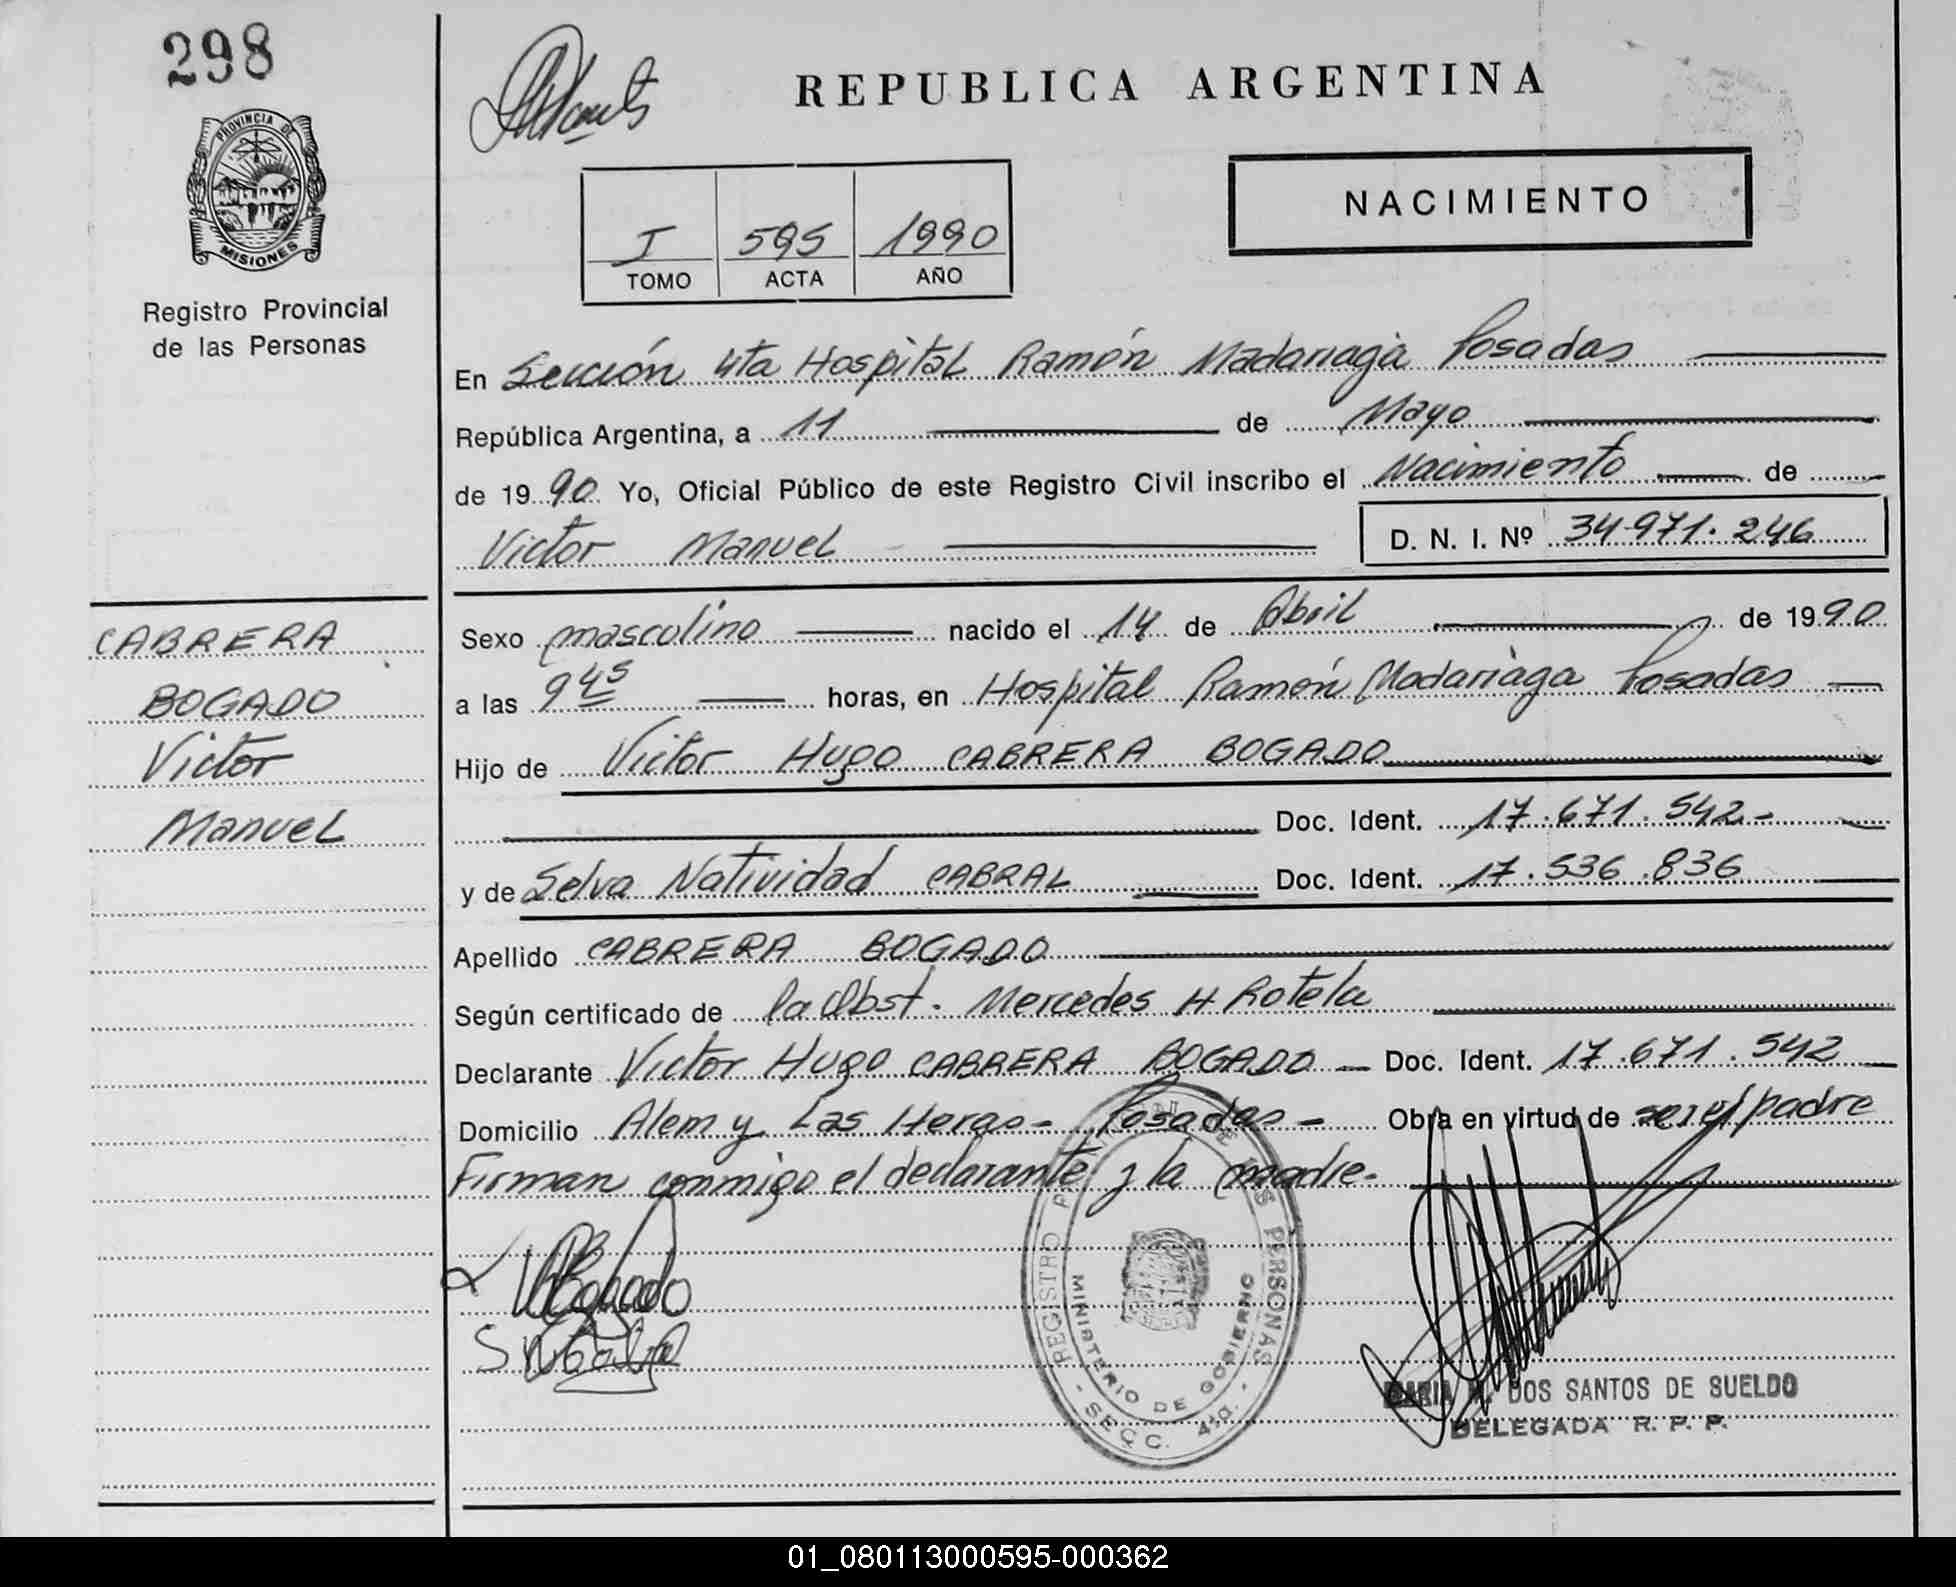 298
REPUBLICA ARGENTINA
PROVINCIA DE
MISIONES
Registro Provincial
de las Personas
I 595 1990
TOMO ACTA AÑO
NACIMIENTO
En Sección 4ta Hospital Ramón Madariaga Posadas
República Argentina, a 11 de Mayo
de 1990 Yo, Oficial Público de este Registro Civil inscribo el Nacimiento de
Victor Manuel D. N. I. Nº 34.971.246
CABRERA
BOGADO
Victor
Manuel
Sexo masculino nacido el 14 de Abril de 1990
a las 9 45 horas, en Hospital Ramón Madariaga Posadas
Hijo de Victor Hugo CABRERA BOGADO
Doc. Ident. 17.671.542-
y de Selva Natividad CABRAL Doc. Ident. 17.536.836
Apellido CABRERA BOGADO
Según certificado de la Obst. Mercedes H Rotela
Declarante Victor Hugo CABRERA BOGADO - Doc. Ident. 17.671.542
Domicilio Alem y Las Heras - Posadas - Obra en virtud de ser el padre
Firman conmigo el declarante y la madre.
REGISTRO PROVINCIAL DE LAS PERSONAS
MINISTERIO DE GOBIERNO
- SECC. 4ta. -
MARIA M. DOS SANTOS DE SUELDO
DELEGADA R. P. P.
01_080113000595-000362